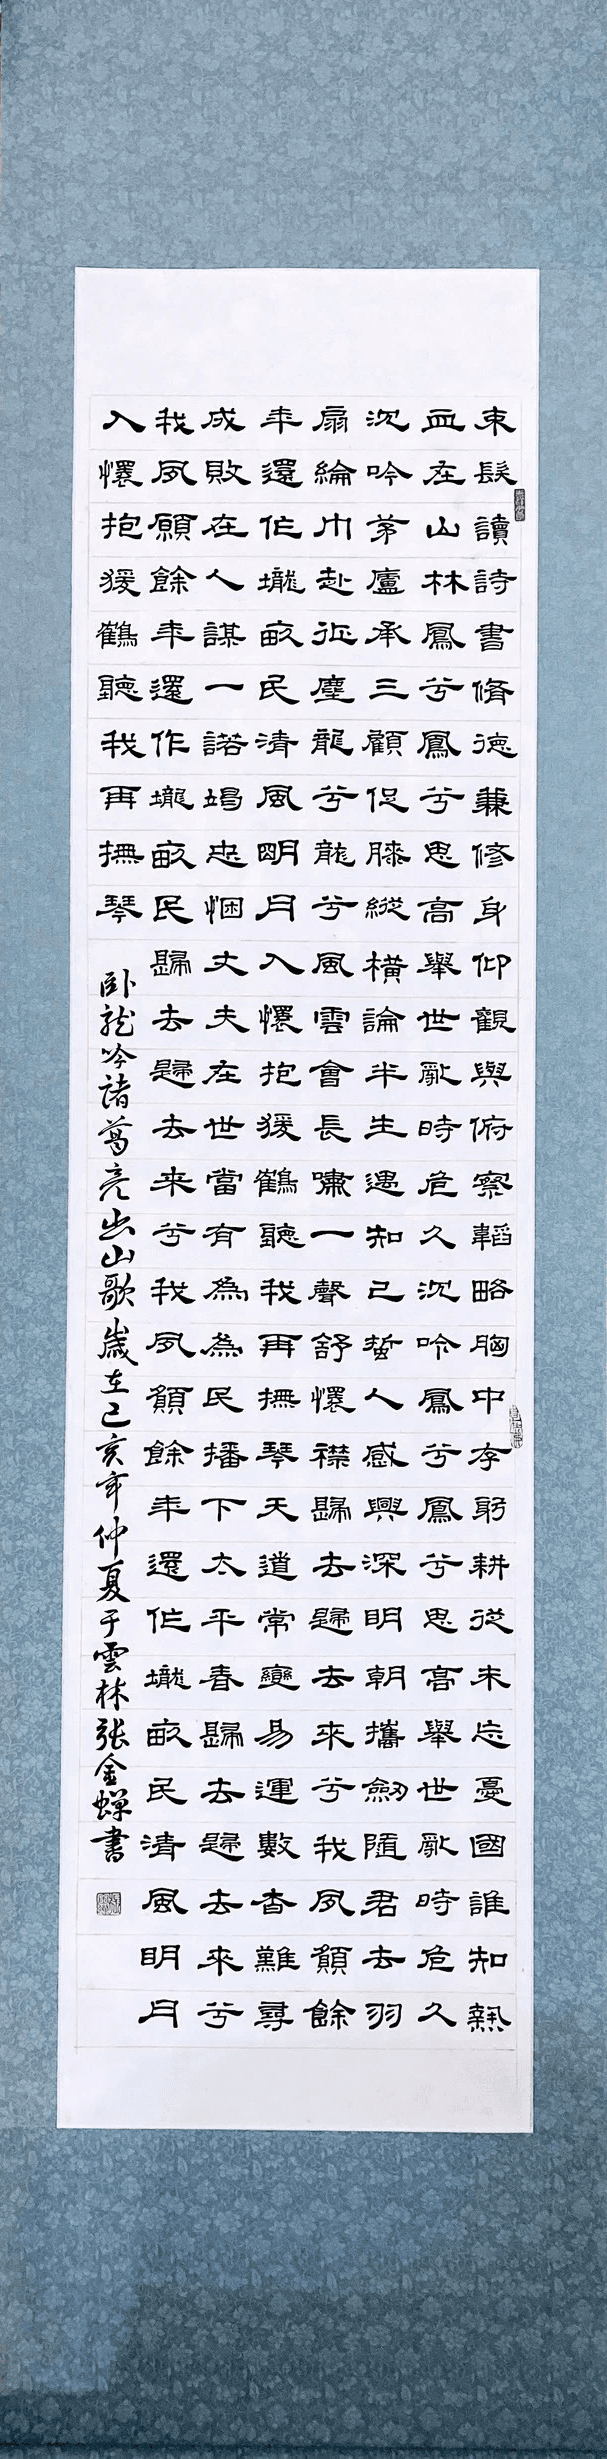 束髮讀詩書脩德兼修身仰觀與俯察韜略胸中存躬耕從未忘憂國誰知熱
血在山林鳳兮鳳兮思高舉世亂時危久沉吟鳳兮鳳兮思高舉世亂時危久
沉吟茅廬承三顧促膝縱橫論半生遇知己蟄人感興深明朝攜劒隨君去羽
扇綸巾赴征塵龍兮龍兮風雲會長嘯一聲舒懷襟歸去歸去來兮我夙願餘
年還作壠畝民清風明月入懷抱猨鶴聽我再撫琴天道常變易運數杳難尋
成敗在人謀一諾竭忠悃丈夫在世當有為為民播下太平春歸去歸去來兮
我夙願餘年還作壠畝民歸去歸去来兮我夙願餘年還作壠畝民清風明月
入懷抱猨鶴聽我再撫琴 臥龍吟諸葛亮出山歌歲在己亥年仲夏于雲林張金蟬書